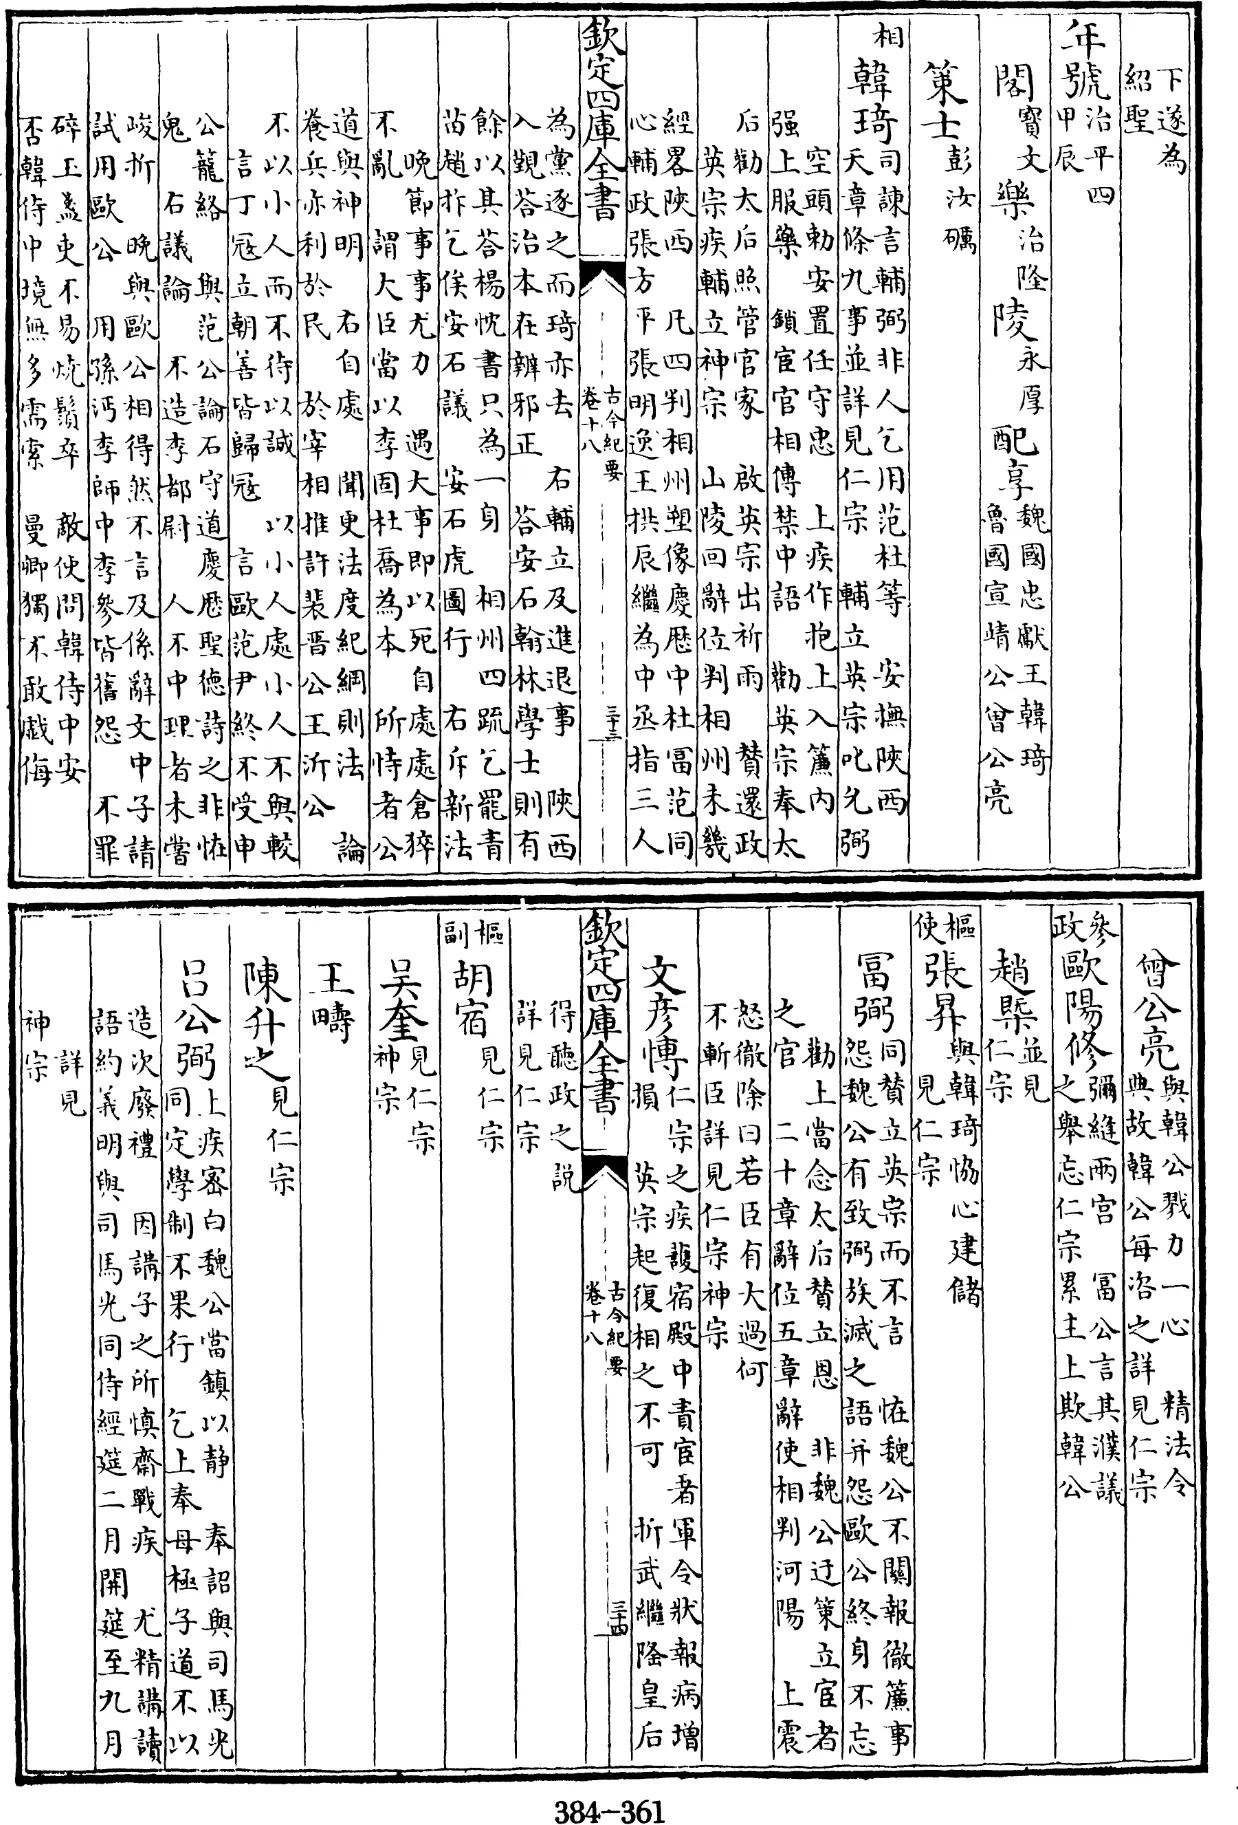 下遂為
紹聖
年號治平四
甲辰
閣寳文樂治隆陵永厚配享魏國忠獻王韓琦
魯國宣靖公曾公亮
策士彭汝礪
相韓琦司諫言輔弼非人乞用范杜等 安撫陜西
天章條九事並詳見仁宗 輔立英宗叱允弼
空頭勅安置任守忠 上疾作抱上入簾内
强上服藥 鎖宦官相傳禁中語 勸英宗奉太
后勸太后照管官家 啟英宗出祈雨 賛還政
英宗疾輔立神宗 山陵回辭位判相州未幾
經畧陜西 凡四判相州塑像慶歴中杜冨范同
心輔政張方平張明逸王拱辰繼為中丞指三人
欽定四庫全書 古今紀要
卷十八 三十三
為黨逐之而琦亦去 右輔立及進退事 陜西
入覲荅治本在辨邪正 荅安石翰林學士則有
餘以其荅楊忱書只為一身 相州四䟽乞罷青
苗趙抃乞俟安石議 安石虎圖行 右斥新法
晚節事事尤力 遇大事即以死自處處倉猝
不亂 謂大臣當以李固杜喬為本 所恃者公
道與神明 右自處 聞更法度紀綱則法 論
養兵亦利於民 於宰相推許裴晋公王沂公
不以小人而不待以誠 以小人處小人不與較
言丁冦立朝善皆歸冦 言歐范尹終不受申
公籠絡 與范公論石守道慶歴聖德詩之非恠
鬼 石議論 不造李都尉 人不中理者未嘗
峻折 晚與歐公相得然不言及係辭文中子請
試用歐公 用孫沔李師中李參皆舊怨 不罪
碎玉盞吏不易燒鬚卒 敵使問韓侍中安
否韓侍中境無多需索 曼卿獨不敢戲侮
曾公亮與韓公戮力一心 精法令
典故韓公每咨之詳見仁宗
參政歐陽修彌縫兩宫 冨公言其濮議
之舉忘仁宗累主上欺韓公
趙槩並見
仁宗
樞使張昇與韓琦恊心建儲
見仁宗
冨弼同賛立英宗而不言 恠魏公不關報徹簾事
怨魏公有致弼族滅之語并怨歐公終身不忘
勸上當念太后賛立恩 非魏公迂策立宦者
之官 二十章辭位五章辭使相判河陽 上震
怒徹除曰若臣有大過何
不斬臣詳見仁宗神宗
文彦愽仁宗之疾䕶宿殿中責宦者軍令狀報病增
損 英宗起復相之不可 折武繼隆皇后
欽定四庫全書 古今紀要
卷十八 三十四
得聽政之説
詳見仁宗
樞副胡宿見仁宗
吴奎見仁宗
神宗
王疇
陳升之見仁宗
吕公弼上疾宻白魏公當鎮以静 奉詔與司馬光
同定學制不果行 乞上奉母極子道不以
造次廢禮 因講子之所慎齋戰疾 尤精講讀
語約義明與司馬光同侍經筵二月開筵至九月
詳見
神宗
384-361